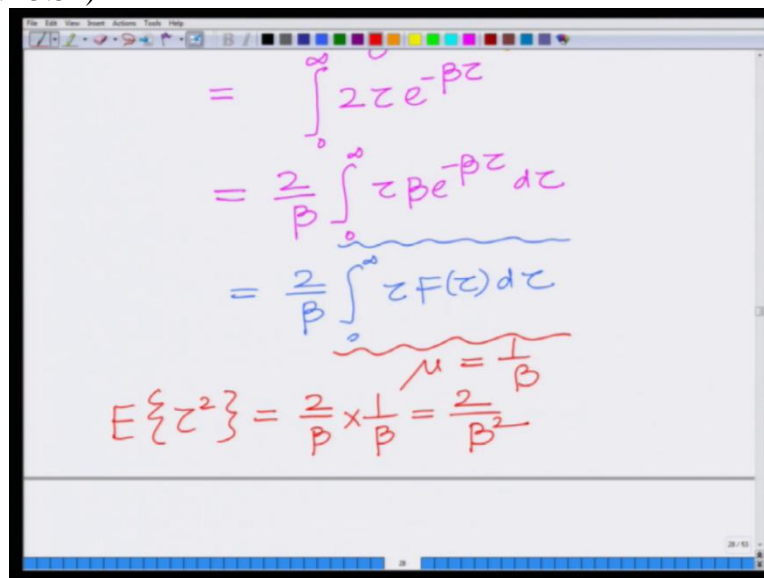 File Edit View Insert Actions Tools Help
= ∫₀^∞ 2τ e^{-βτ}
= 2/β ∫₀^∞ τ β e^{-βτ} dτ
= 2/β ∫₀^∞ τ F(τ) dτ
μ = 1/β
E{τ²} = 2/β × 1/β = 2/β²
28 / 93
28